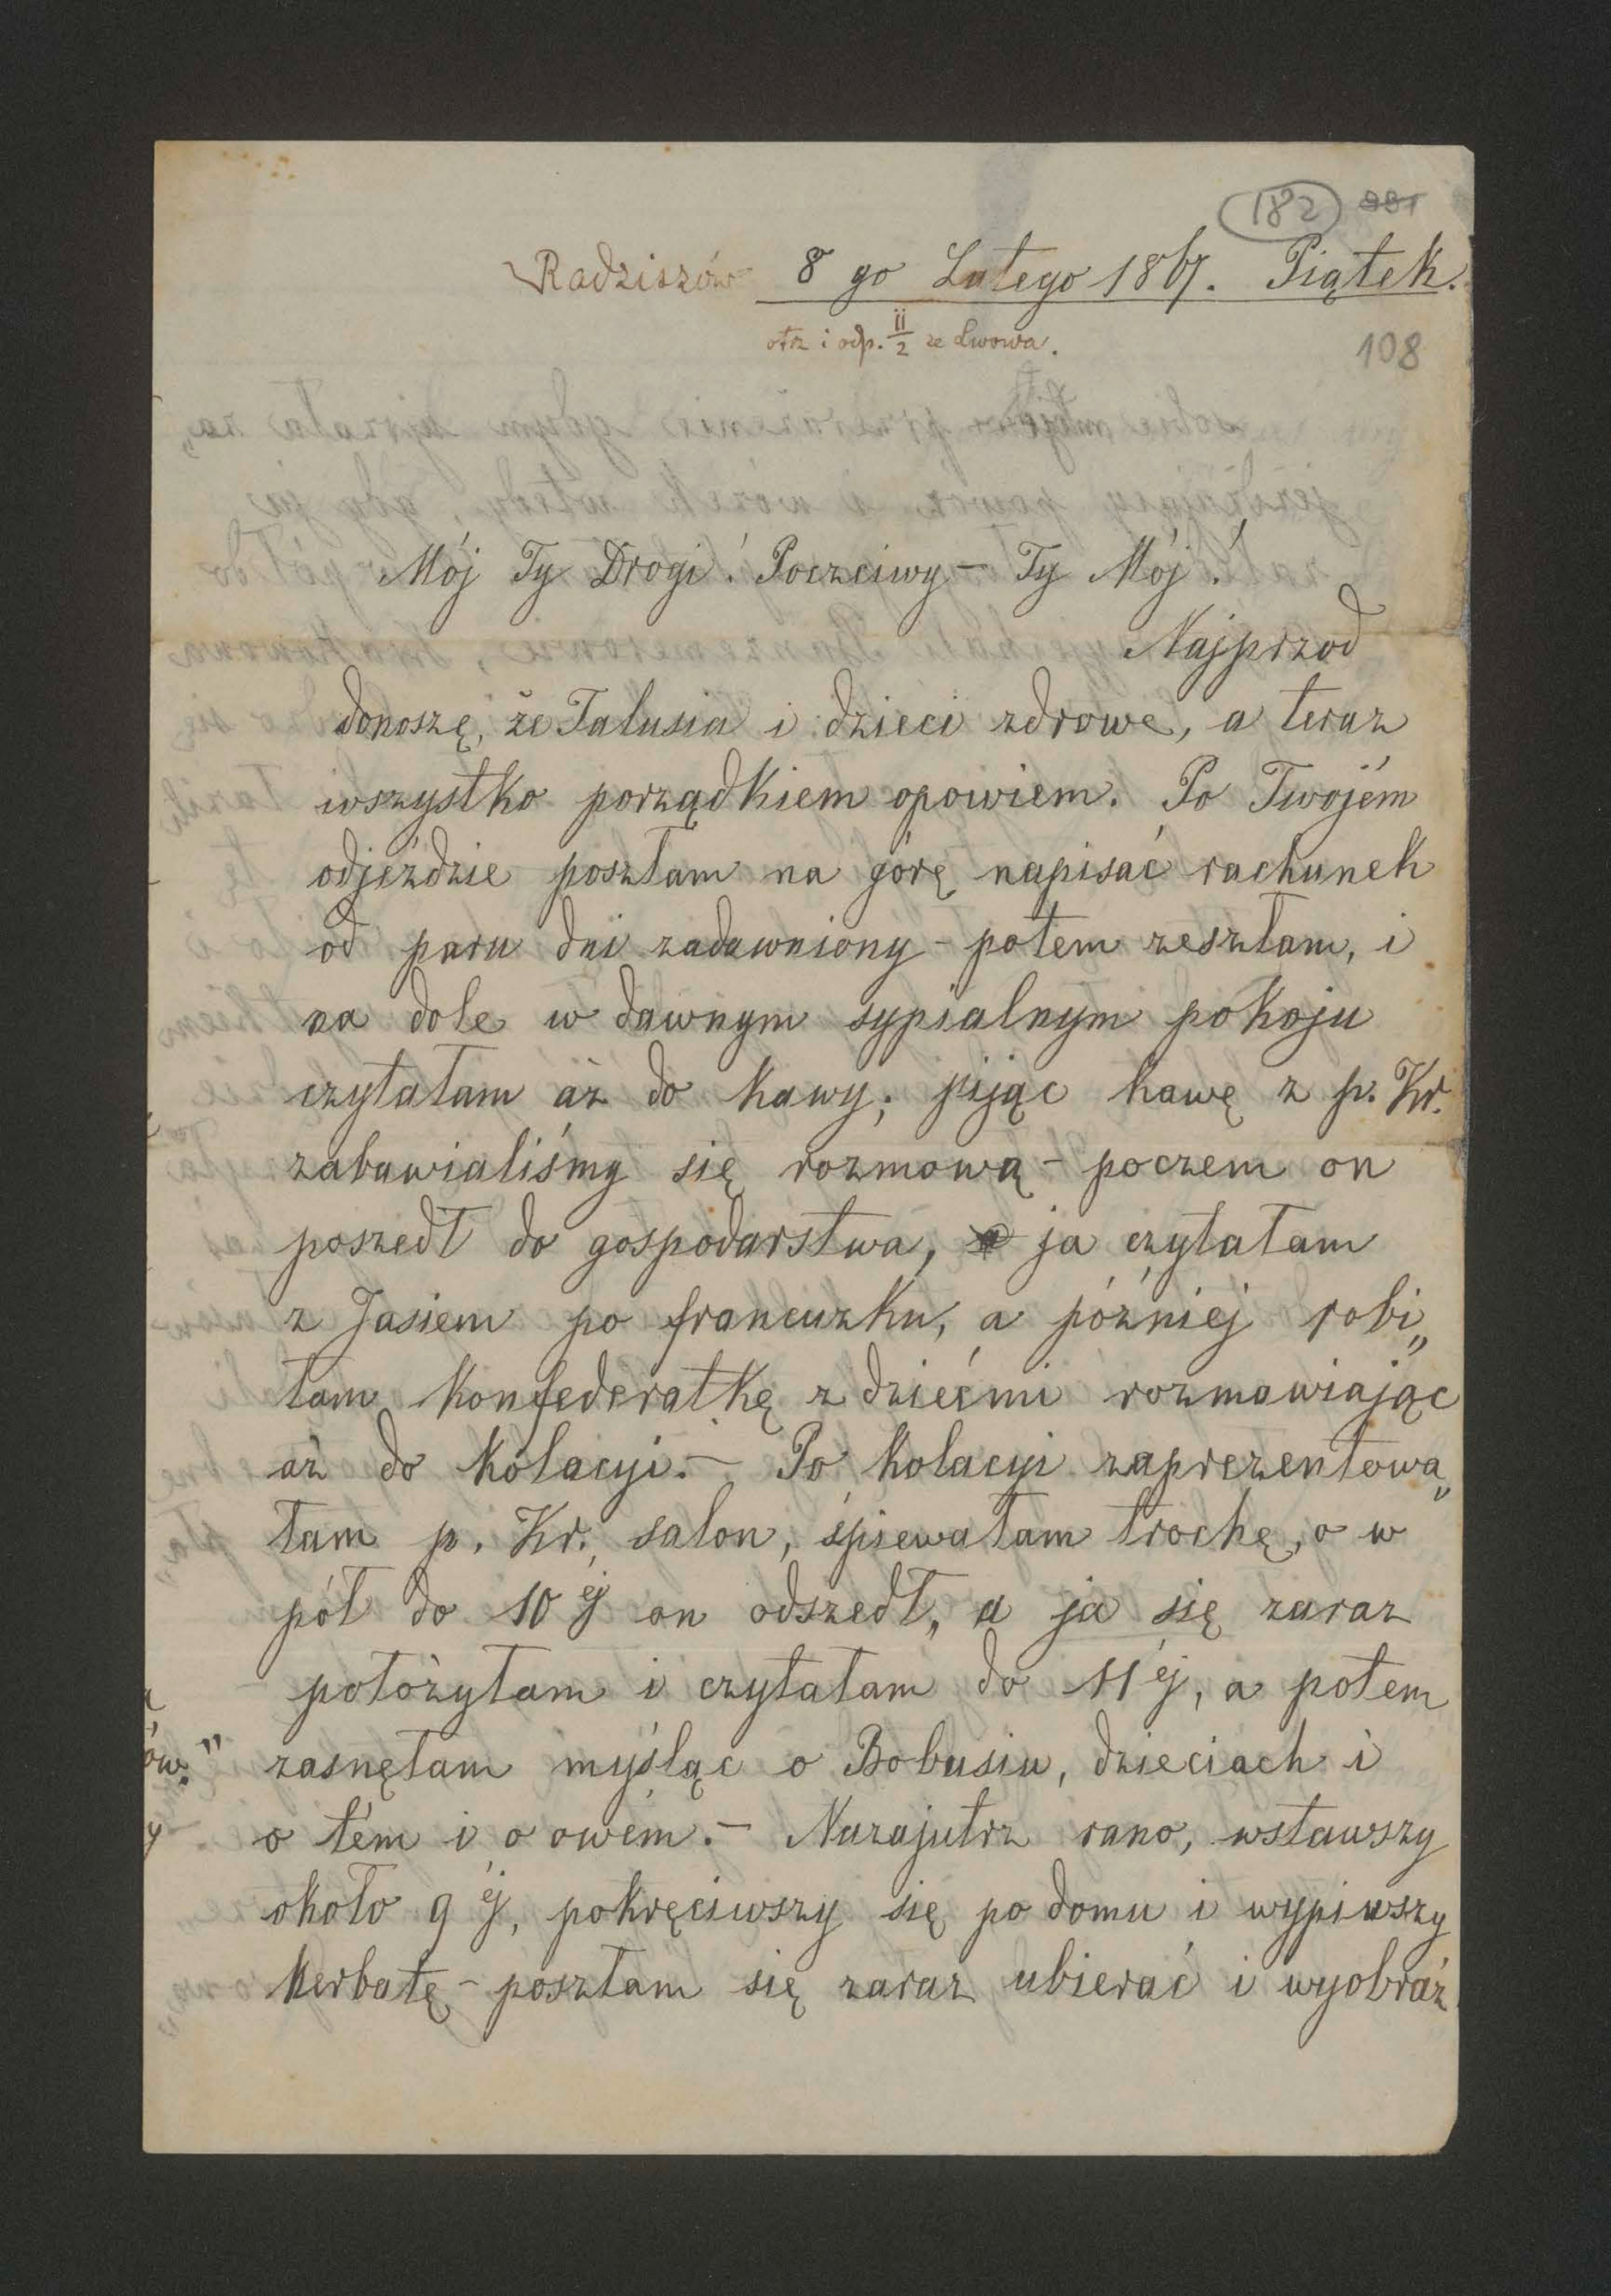 182
Radziszów 8 go Lutego 1867. Piątek.
otrz i odp. 11/2 ze Lwowa.
108
Mój Ty Drogi! Poczciwy – Ty Mój!
Najprzod
donoszę, że Talusia i dzieci zdrowe, a teraz
wszystko porządkiem opowiem. Po Twojém
odjeździe poszłam na górę napisać rachunek
od paru dni zadawniony – potem zeszłam, i
na dole w dawnym sypialnym pokoju
czytałam aż do kawy; pijąc kawę z p. Kr.
zabawialiśmy się rozmową – poczem on
poszedł do gospodarstwa, a ja czytałam
z Jasiem po francuzku, a później robi„
łam konfederatkę z dziećmi rozmawiając
aż do kolacyi. – Po kolacyi zaprezentowa„
łam p. Kr. salon, śpiewałam trochę, o w
pół do 10 éj on odszedł, a ja się zaraz
położyłam i czytałam do 11 éj, a potem
zasnęłam myśląc o Bobusiu, dzieciach i
o tém i o owém. – Nazajutrz rano, wstawszy
około 9 éj, pokręciwszy się po domu i wypiwszy
herbatę – poszłam się zaraz ubierać i wyobraź